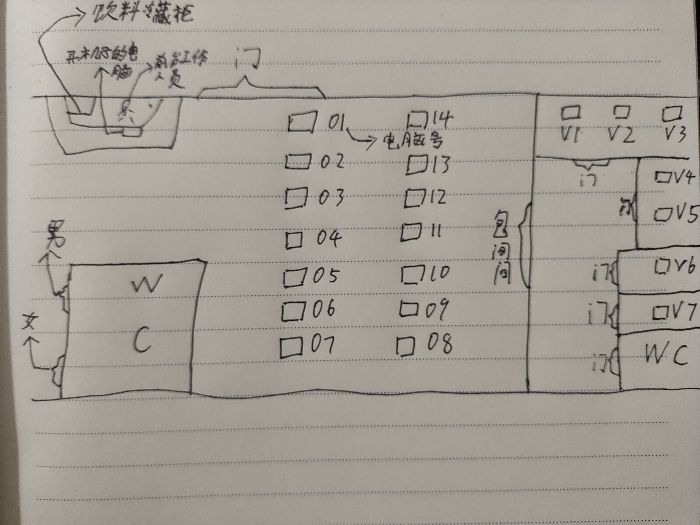 饮料冷藏柜
开机的电
脑
前台工作
人员
门
01
14
电脑号
02
13
03
12
04
11
05
10
06
09
07
08
V1
V2
V3
门
V4
门
V5
包间门
门
V6
门
V7
门
WC
男
女
W
C